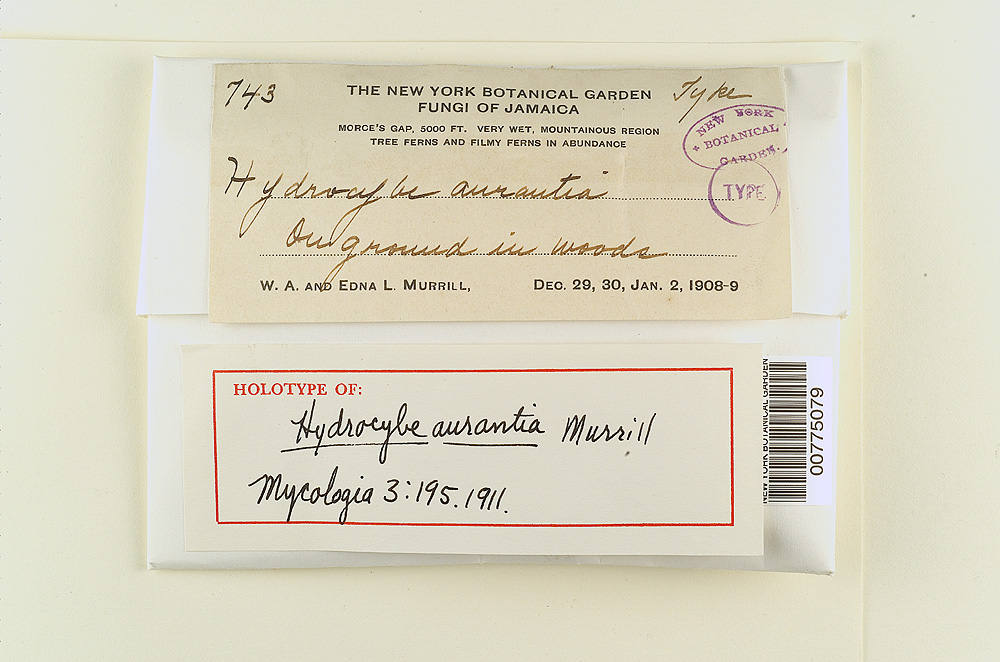 743
THE NEW YORK BOTANICAL GARDEN
Type
FUNGI OF JAMAICA
MORCE'S GAP, 5000 FT. VERY WET, MOUNTAINOUS REGION
TREE FERNS AND FILMY FERNS IN ABUNDANCE
NEW YORK
BOTANICAL
GARDEN.
TYPE
Hydrocybe aurantia
On ground in woods
W. A. AND EDNA L. MURRILL,
DEC. 29, 30, JAN. 2, 1908-9
HOLOTYPE OF:
Hydrocybe aurantia Murrill
Mycologia 3:195.1911.
NEW YORK BOTANICAL GARDEN
00775079